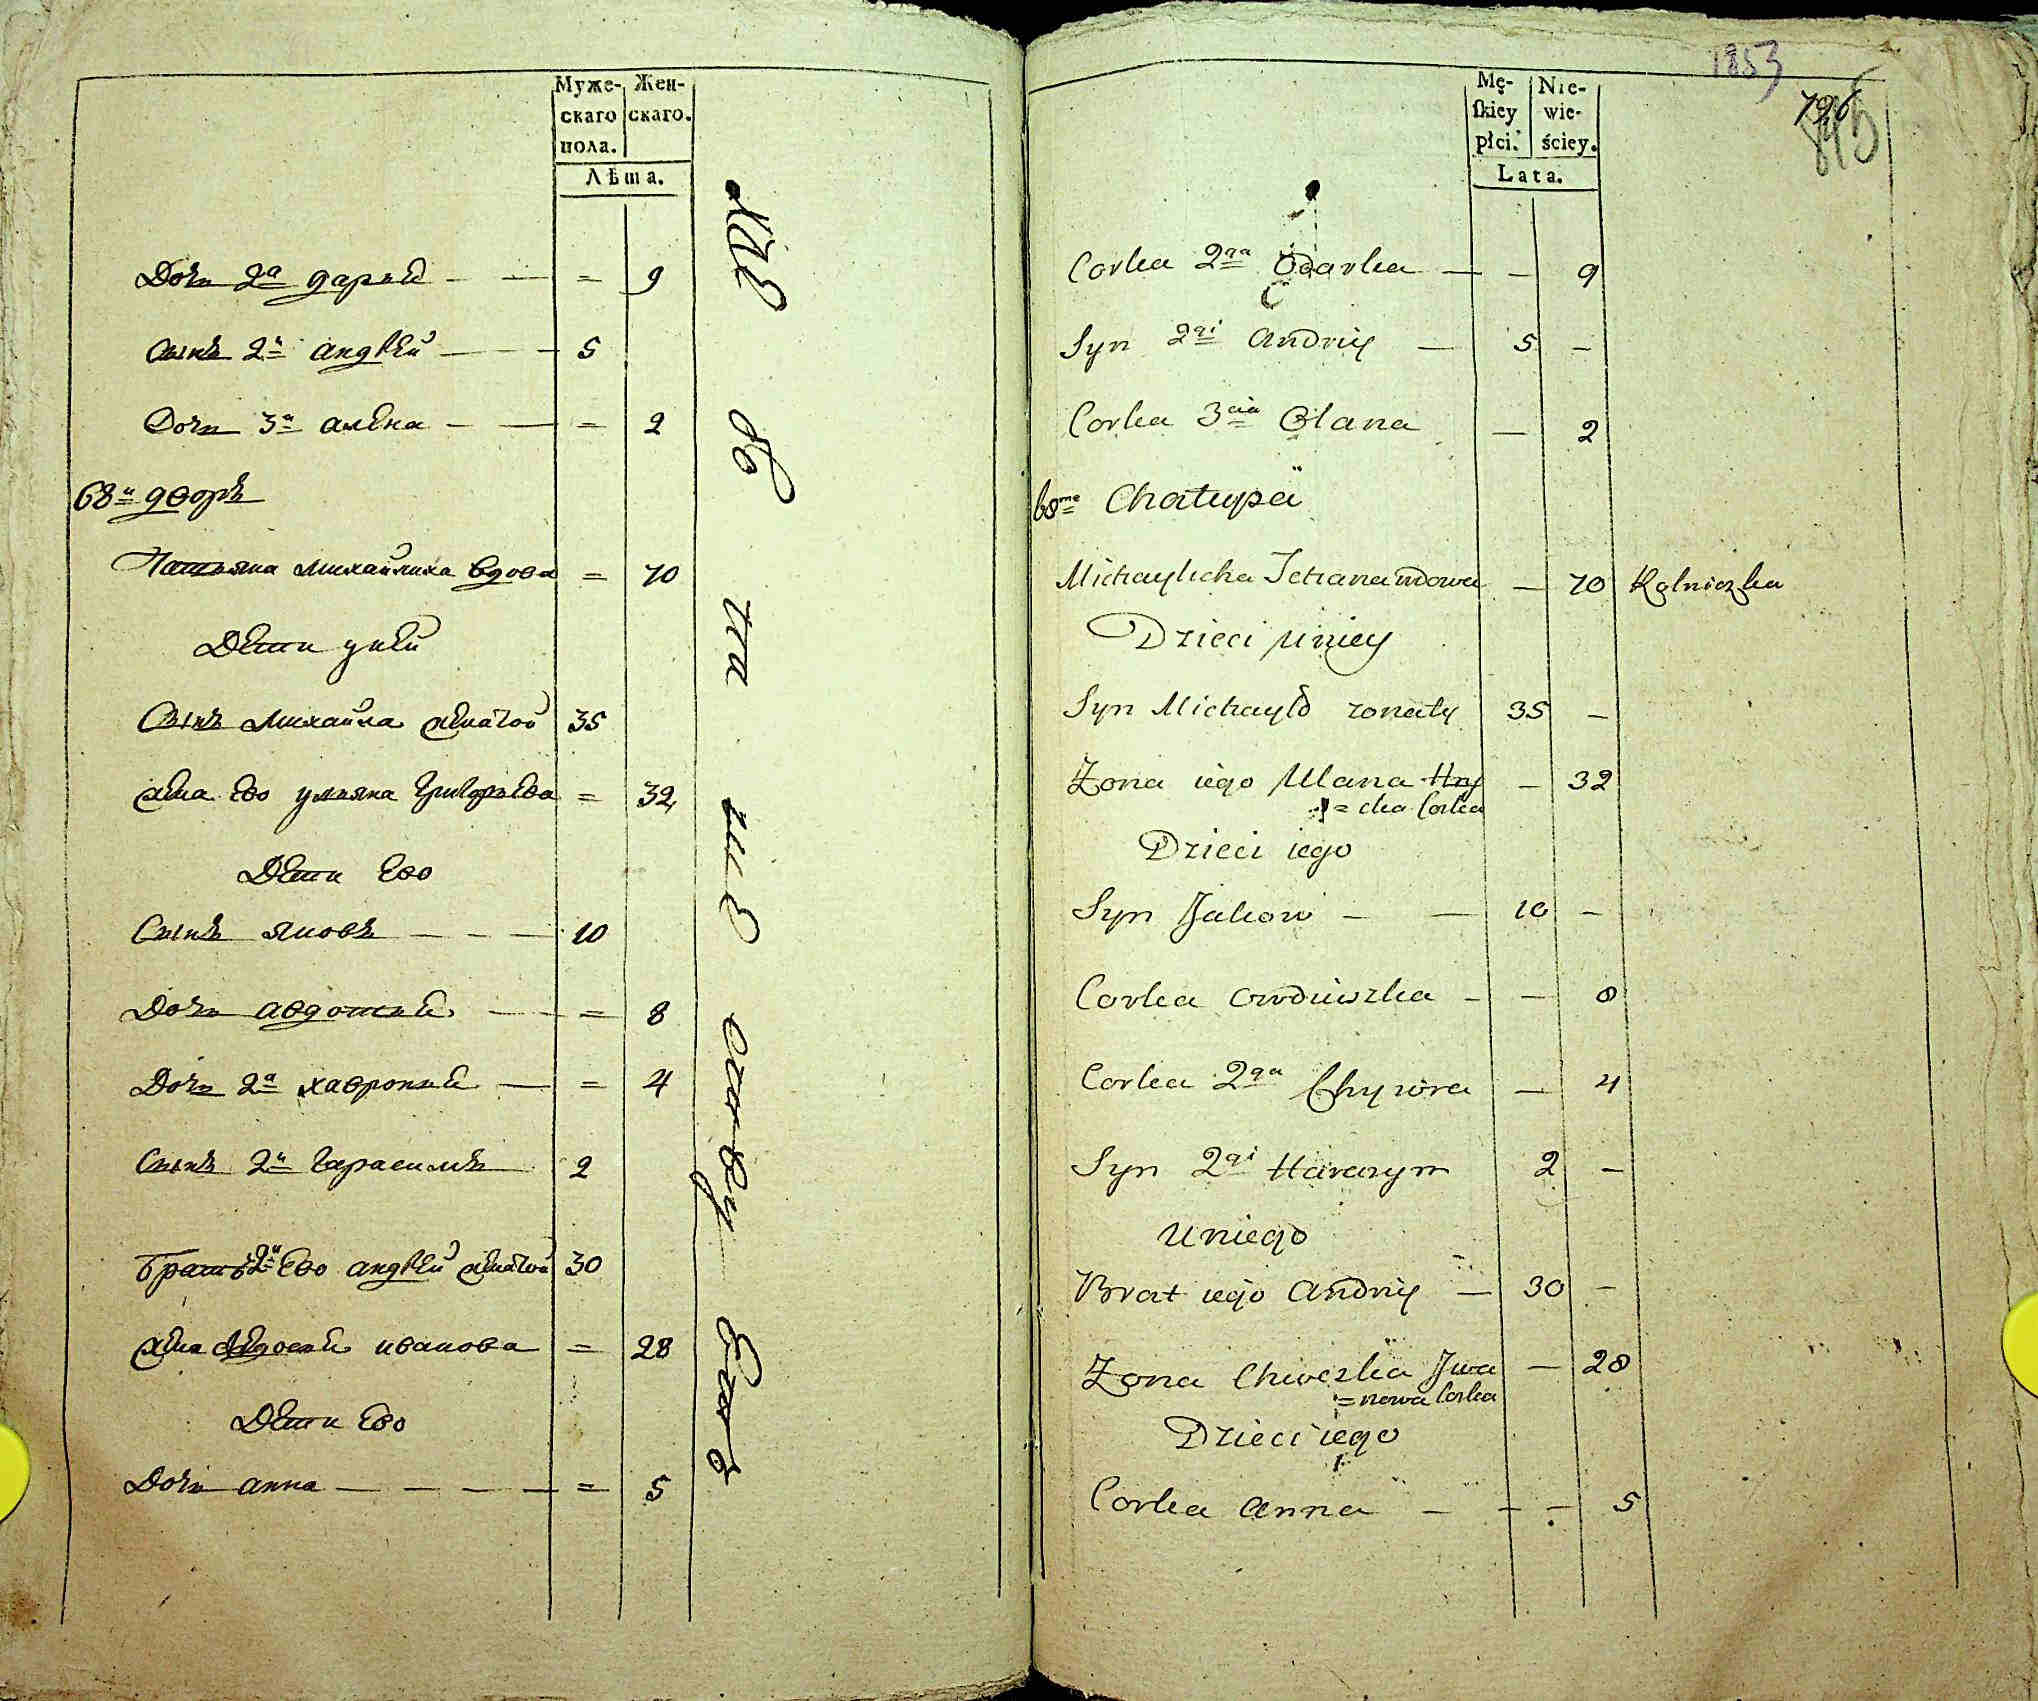 Муже-
скаго
пола.
Жен-
скаго.
Лѣта.
Дочь 2я дарья — — = 9
Сынъ 2й андрей — — 5
Дочь 3я алена — — = 2
68й дворъ
Татьяна михайлиха вдова = 70
Дети уней
Сынъ михайла женатой 35
жена ево ульяна Григорьева = 32
Дети Ево
Сынъ яковъ — — — 10
Дочь авдотья — — = 8
Дочь 2я хавронья — = 4
Сынъ 2й Гарасимъ 2
Братъ 2й Ево андрей женатой 30
жена Федосья иванова = 28
Дети Ево
Дочь анна — — — — = 5
Mę-
skiey
płci.
Nie-
wie-
ściey.
Lata.
1853
796
Corka 2ga Odarka — — 9
Syn 2gi Andriy — 5 —
Corka 3cia Olana — 2
68me Chałupa
Michaylicha Tetiana wdowa — 70 Rolniczka
Dzieci uniey
Syn Michayło zonaty 35 —
Żona iego Ulana Hry — 32
= cka Corka
Dzieci iego
Syn Jakow — — 10 —
Corka Owdiuszka — — 8
Corka 2ga Chywra — 4
Syn 2gi Harasym 2 —
Uniego
Brat iego Andriy — 30 —
Żona Chweska Iwa — 28
= nowa Corka
Dzieci iego
Corka Anna — — — 5